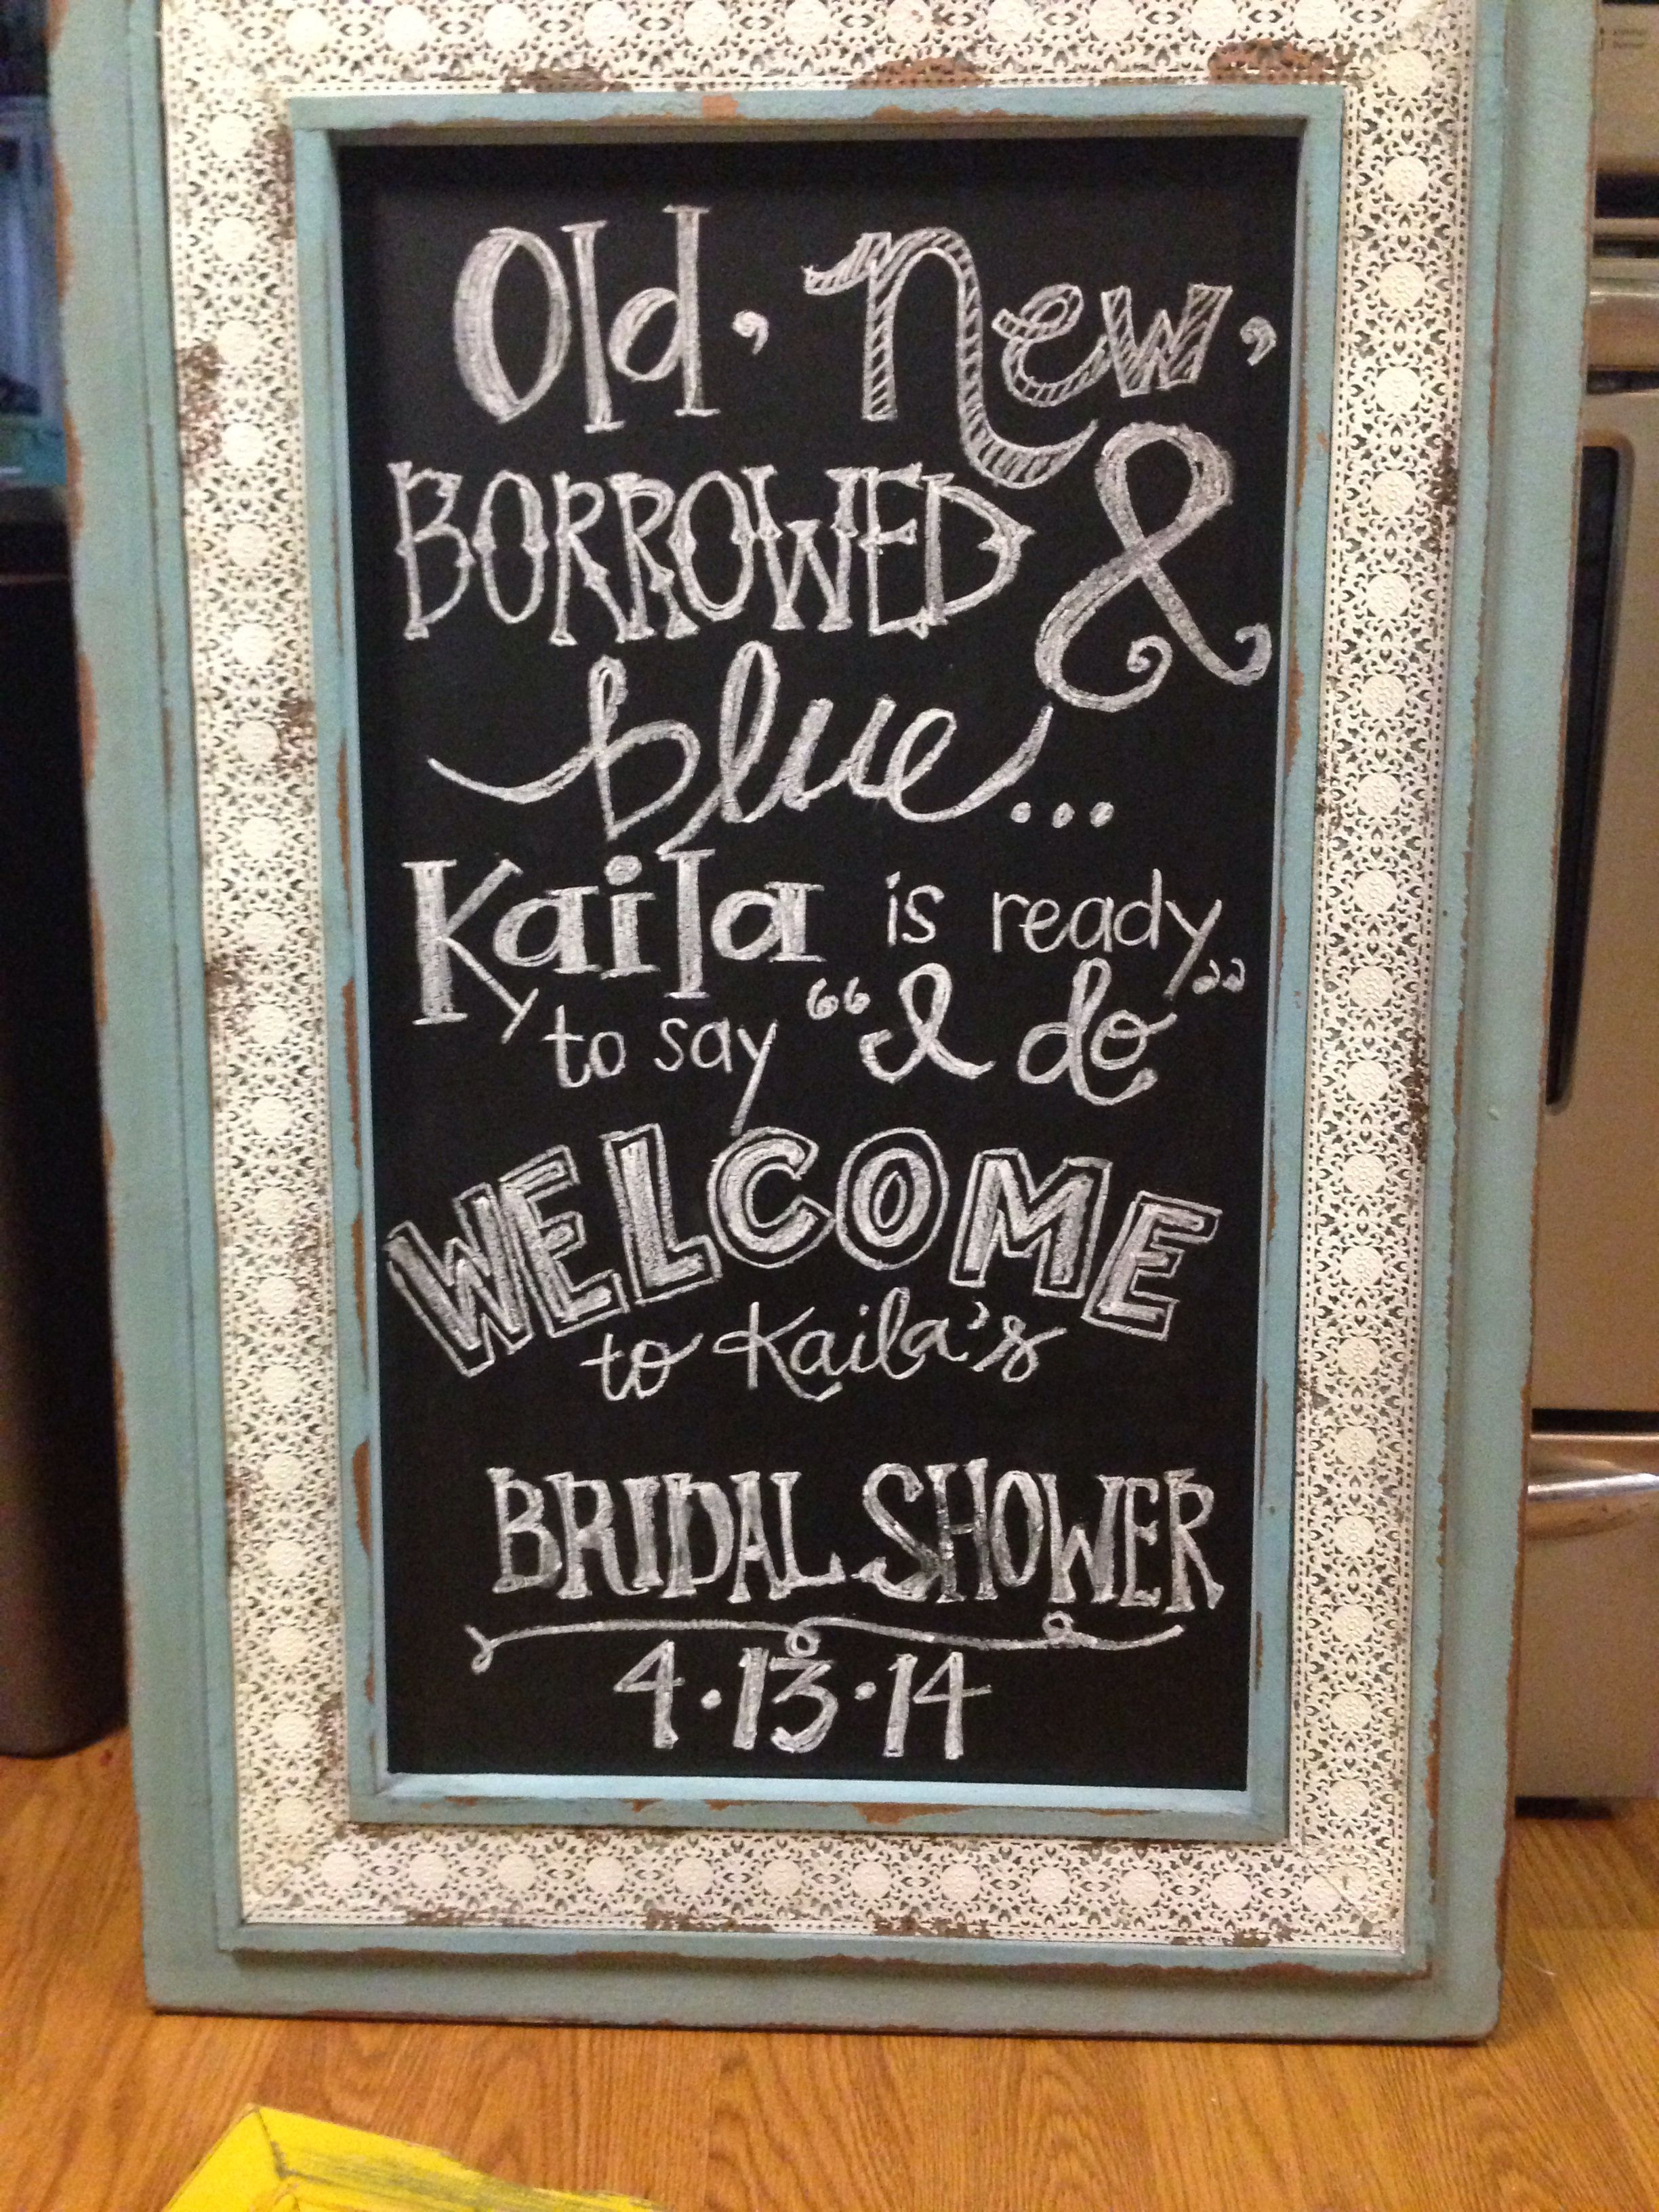 Old, New,
BORROWED &
blue...
Kaila is ready
to say "I do"
WELCOME
to Kaila's
BRIDAL SHOWER
4·13·14